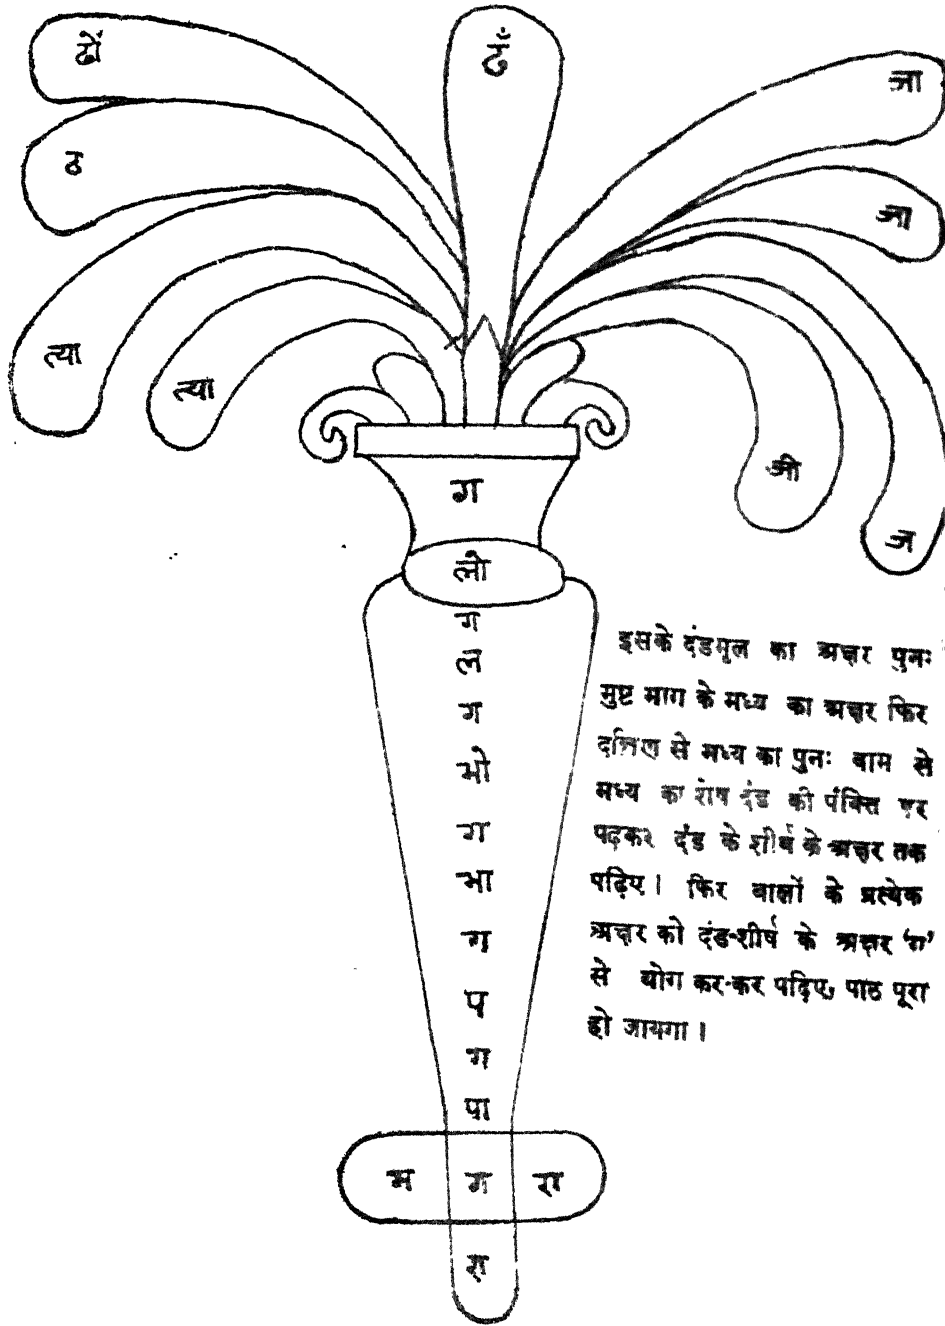 ढों
ढँ
जा
ठ
जा
त्या
त्या
जी
ज
ग
लो
ग
ल
ग
भो
ग
भा
ग
प
ग
पा
भ ग रा
रा
इसके दंडमूल का अक्षर पुनः
मुष्ट भाग के मध्य का अक्षर फिर
दक्षिण से मध्य का पुनः बाम से
मध्य का शेष दंड की पंक्ति पर
पढ़कर दंड के शीर्ष के अक्षर तक
पढ़िए। फिर बालों के प्रत्येक
अक्षर को दंड-शीर्ष के अक्षर 'ग'
से योग कर-कर पढ़िए, पाठ पूरा
हो जायगा।